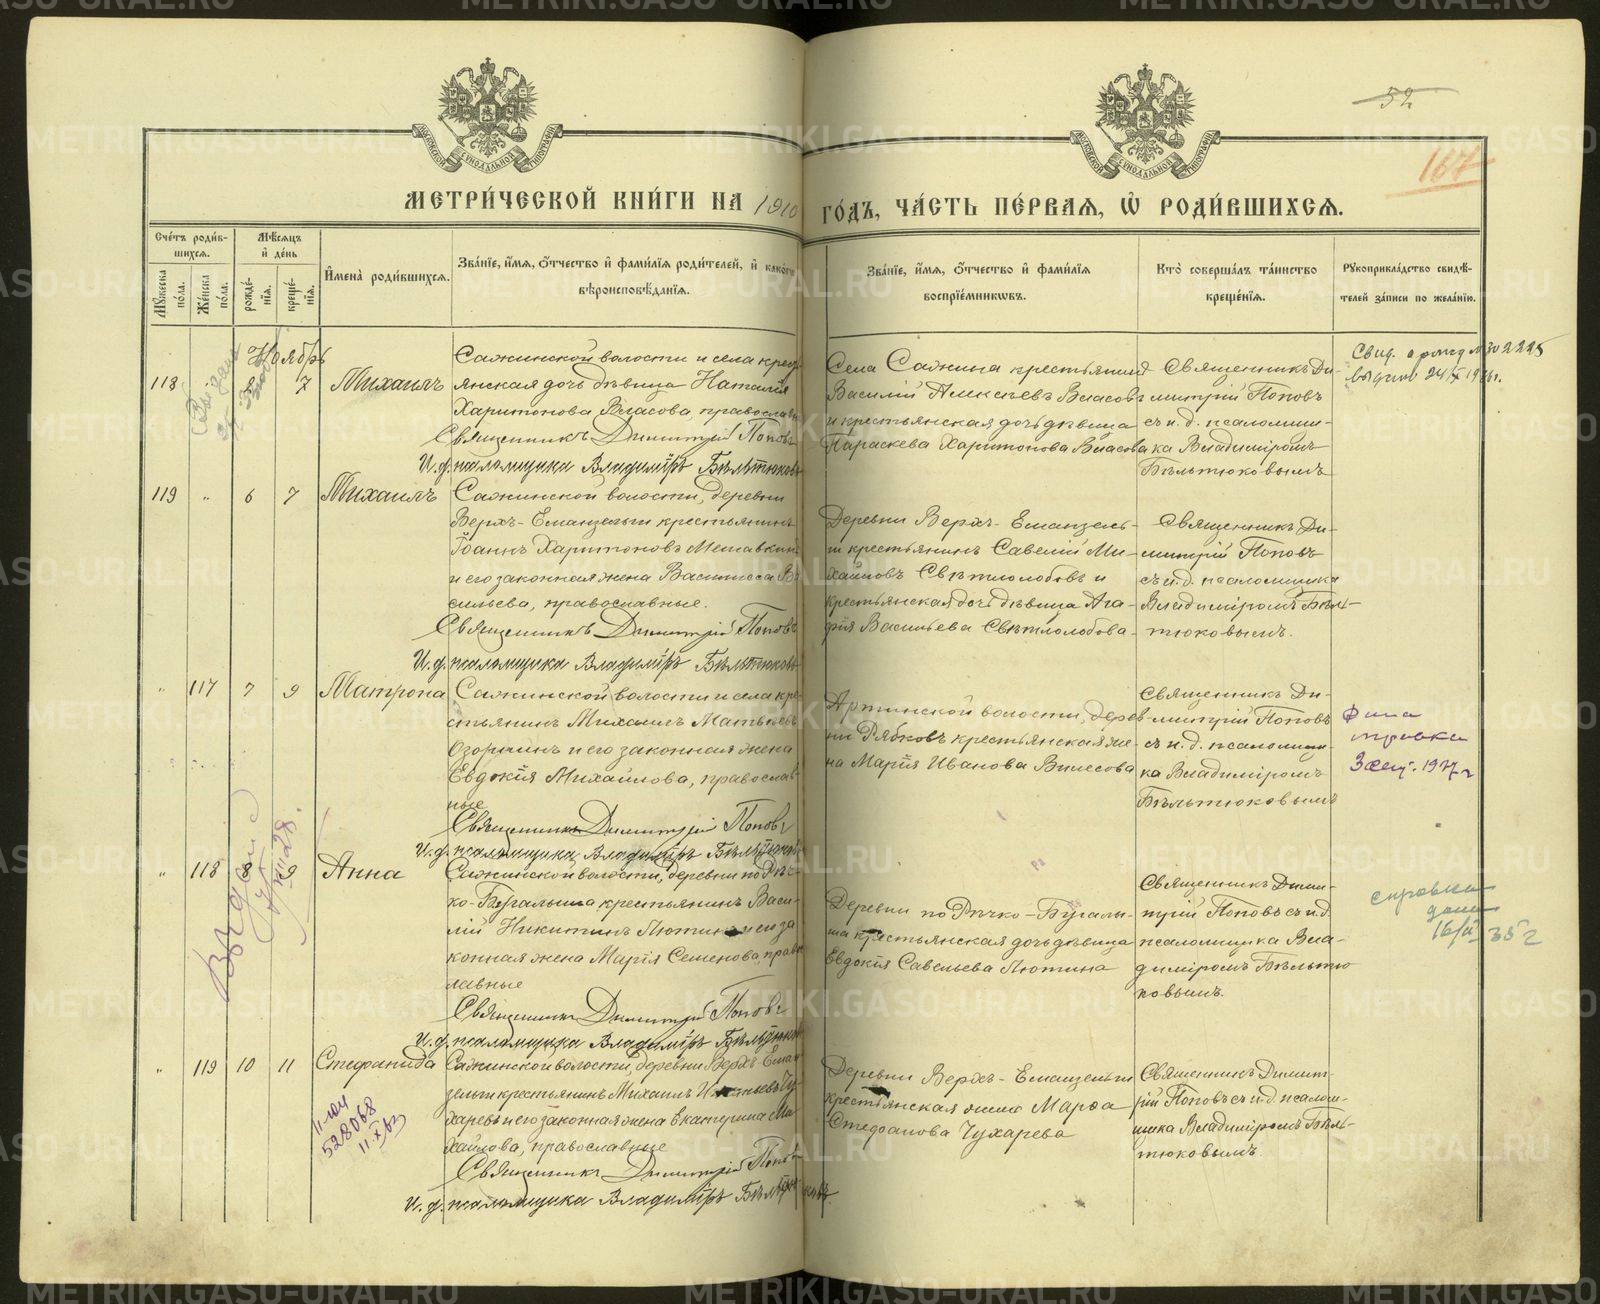 52
167
МЕТРИ́ЧЕСКОЙ КНИ́ГИ НА 1910 ГО́ДЪ, ЧА́СТЬ ПЕ́РВАЯ, Ѡ РОДИ́ВШИХСЯ.
Сче́тъ роди́вшихся.
Мꙋ́жеска по́ла.
Же́нска по́ла.
Мѣ́сяцъ и де́нь
рожде́нїя.
креще́нїя.
Имена̀ роди́вшихся.
Зва́нїе, и́мя, ѻ́тчество и фами́лїя роди́телей, и како́гѡ
вѣроисповѣ́данїя.
Зва́нїе, и́мя, ѻ́тчество и фами́лїя
воспрїе́мникѡвъ.
Кто̀ соверша́лъ та́инство
креще́нїя.
Рꙋкоприкла́дство свидѣ́-
телей за́писи по жела́нїю.
Ноябрь
118 7 Михаилъ
Сажинской волости и села кресть-
янская дочь дѣвица Наталія
Харитонова Власова, православн.
Священникъ Димитрій Поповъ
И.д. псаломщика Владиміръ Бѣльтюковъ
Села Сажина крестьянинъ
Василій Алексѣевъ Власовъ
и крестьянская дочь дѣвица
Параскева Харитонова Власова
Священникъ Ди-
митрій Поповъ
съ и. д. псаломщи-
ка Владиміромъ
Бѣльтюковымъ
119 " 6 7 Михаилъ
Сажинской волости, деревни
Верхъ-Еманзельги крестьянинъ
Іоаннъ Харитоновъ
и его законная жена Васса Ва-
сильева, православные.
Священникъ Димитрій Поповъ
И.д. псаломщика Владиміръ Бѣльтюковъ
Деревни Верхъ-Еманзель-
ги крестьянинъ Савелій Ми-
хайловъ Свѣтлолобовъ и
крестьянская дочь дѣвица Ага-
фія Васильева Свѣтлолобова
Священникъ Ди-
митрій Поповъ
съ и. д. псаломщика
Владиміромъ Бѣль-
тюковымъ.
" 117 7 9 Матрона
Сажинской волости и села кре-
стьянинъ Михаилъ Матвѣевъ
Озорнинъ и его законная жена
Евдокія Михайлова, православ-
ные
Священникъ Димитрій Поповъ
И.д. псаломщика Владиміръ Бѣльтюковъ
Артинской волости, дерев-
ни Рябковъ крестьянская же-
на Марія Иванова
Священникъ Ди-
митрій Поповъ
съ и. д. псаломщи-
ка Владиміромъ
Бѣльтюковымъ
справка
" 118 8 9 Анна
Сажинской волости, деревни по Рѣч-
ко-Бугалыша крестьянинъ Васи-
лій Никитинъ Лютинъ и его за-
конная жена Марія Семенова, право-
славные
Священникъ Димитрій Поповъ
И.д. псаломщика Владиміръ Бѣльтюковъ
Деревни по Рѣчко-Бугалы-
ша крестьянская дочь дѣвица
Евдокія Савельева Лютина
Священникъ Дими-
трій Поповъ съ и. д.
псаломщика Вла-
диміромъ Бѣльтю-
ковымъ.
справка
дана
35 г
Выдано
" 119 10 11 Стефанида
Сажинской волости, деревни Верхъ-Еман-
зельги крестьянинъ Михаилъ Чу-
харевъ и его законная жена Екатерина Ми-
хайлова, православные
Священникъ Димитрій Поповъ
И.д. псаломщика Владиміръ Бѣльтюковъ
Деревни Верхъ-Еманзельги
крестьянская жена Марѳа
Стефанова Чухарева
Священникъ Димит-
рій Поповъ съ и. д. псалом-
щика Владиміромъ Бѣль-
тюковымъ.
528068
METRIKI.GASO-URAL.RU